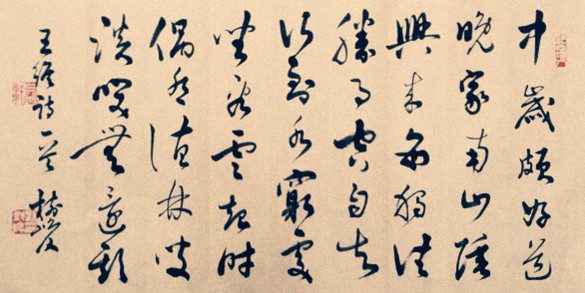 中歲頗好道
晚家南山陲
興來每獨往
勝事空自知
行到水窮處
坐看雲起時
偶然值林叟
談笑無還期
王維詩一首